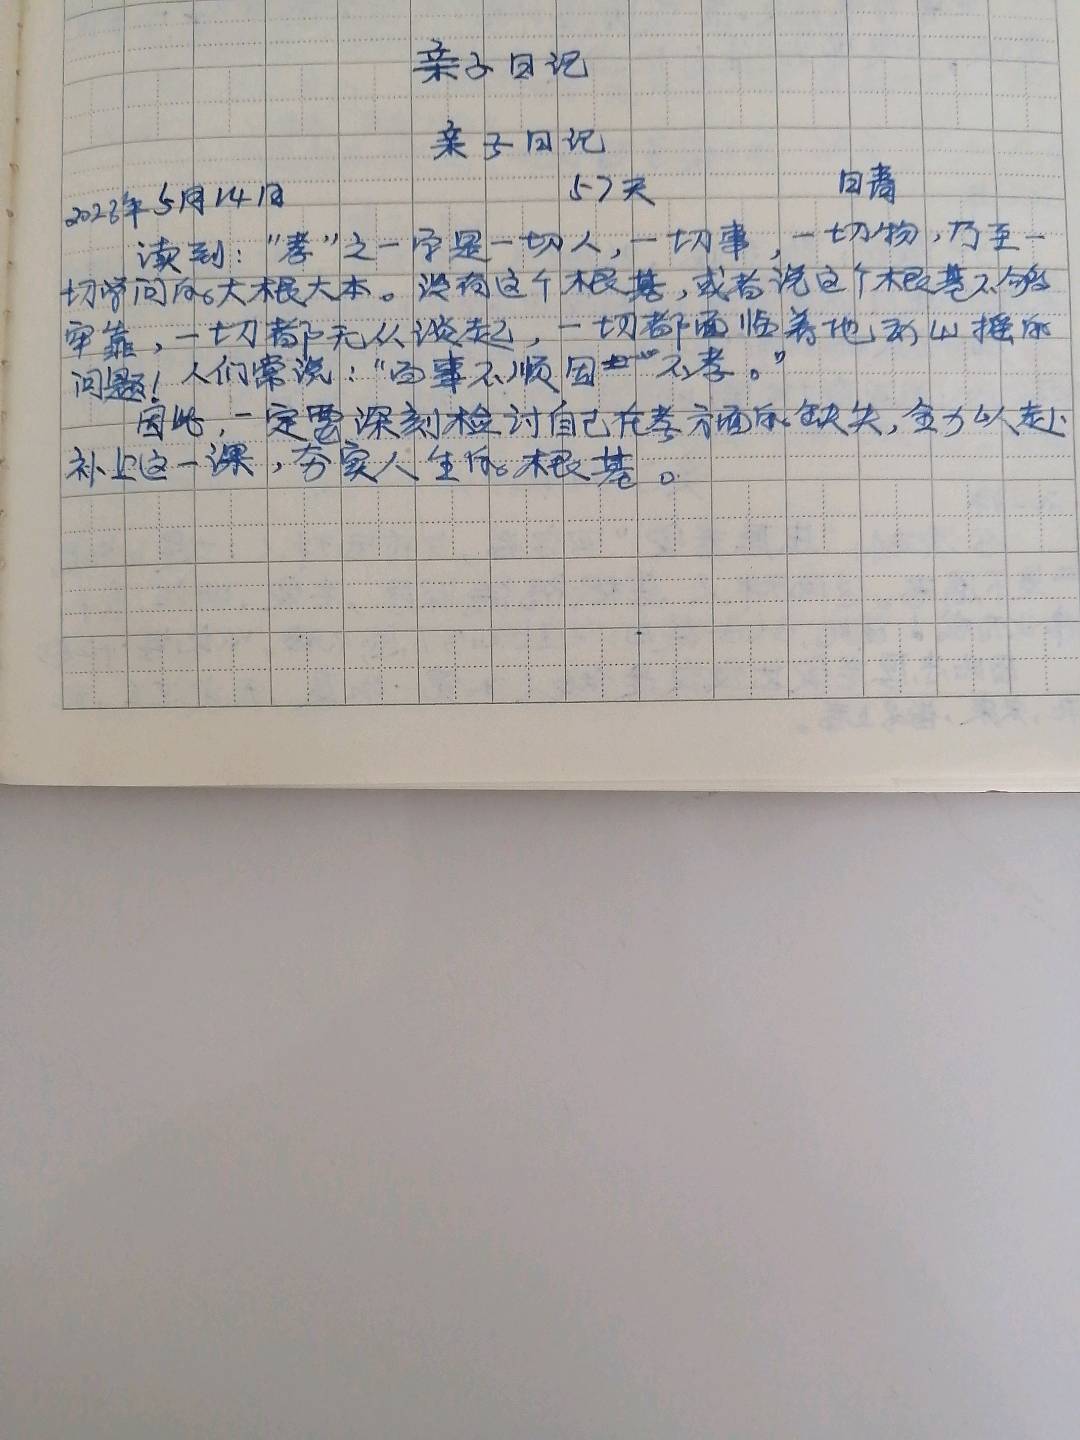 亲子日记
亲子日记
2023年5月14日 57天 日青
读到："孝"之一字是一切人，一切事，一切物，乃至一
切学问的大根大本。没有这个根基，或者说这个根基不够
牢靠，一切都无从谈起，一切都面临着地动山摇的
问题！人们常说："百事不顺因 不孝。"
因此，一定要深刻检讨自己在孝方面的缺失，全力以赴
补上这一课，夯实人生的根基。